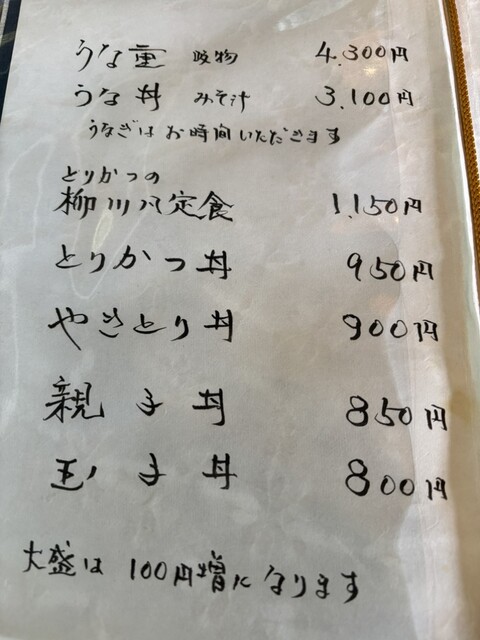 うな重 吸物 4.300円
うな丼 みそ汁 3.100円
うなぎはお時間いただきます
とりかつの
柳川風定食 1.150円
とりかつ丼 950円
やきとり丼 900円
親子丼 850円
玉子丼 800円
大盛は100円増になります